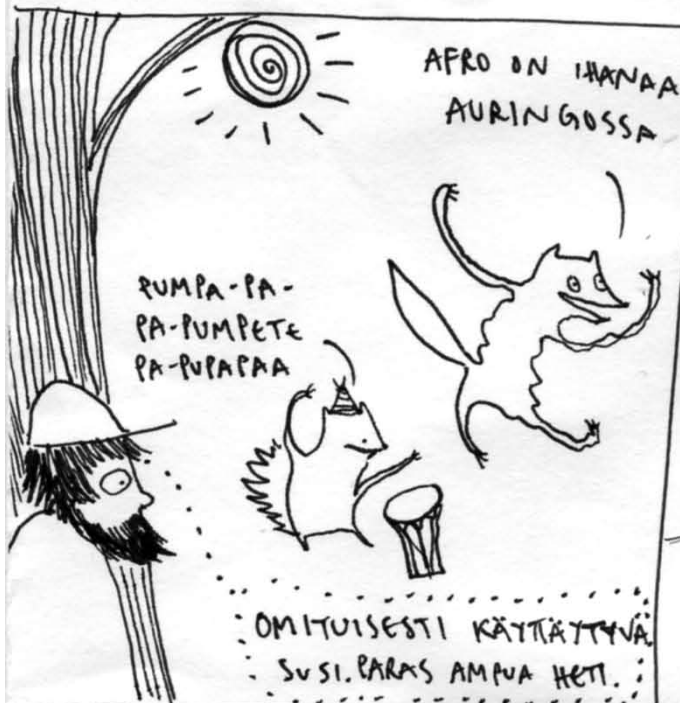 AFRO ON IHANAA
AURINGOSSA
PUMPA-PA-
PA-PUMPETE
PA-PUPAPAA
OMITUISESTI KÄYTTÄYTYVÄ
SUSI. PARAS AMPUA HETI.